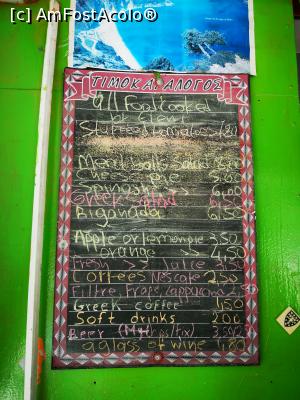 (c) AmFostAcolo®
ΤΙΜΟΚΑΤΑΛΟΓΟΣ
All Food cooked
by Eleni
Stuffed tomatoes 7,80
Meat balls Salad
Cheese pie 5,00
6,00
Greek salad 6,50
Briganada 6,50
Apple or lemon pie 3,50
orange >> 4,50
Fresh juice 3,50
Coffees Nescafe 2,50
Filtre Frape/cappuccino 2,50
Greek coffee 1,50
Soft drinks 2,00
Beer
a glass of wine 4,80